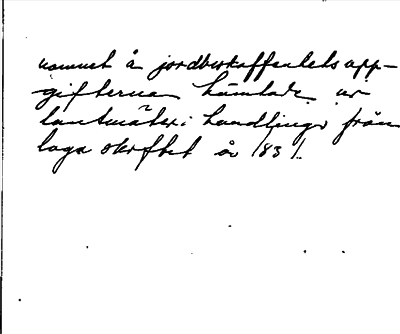 namnet å jordbrukaffentlets upp-
gifterna hämtade ur
lantmäteri handlingar från
laga skiftet år 1831.